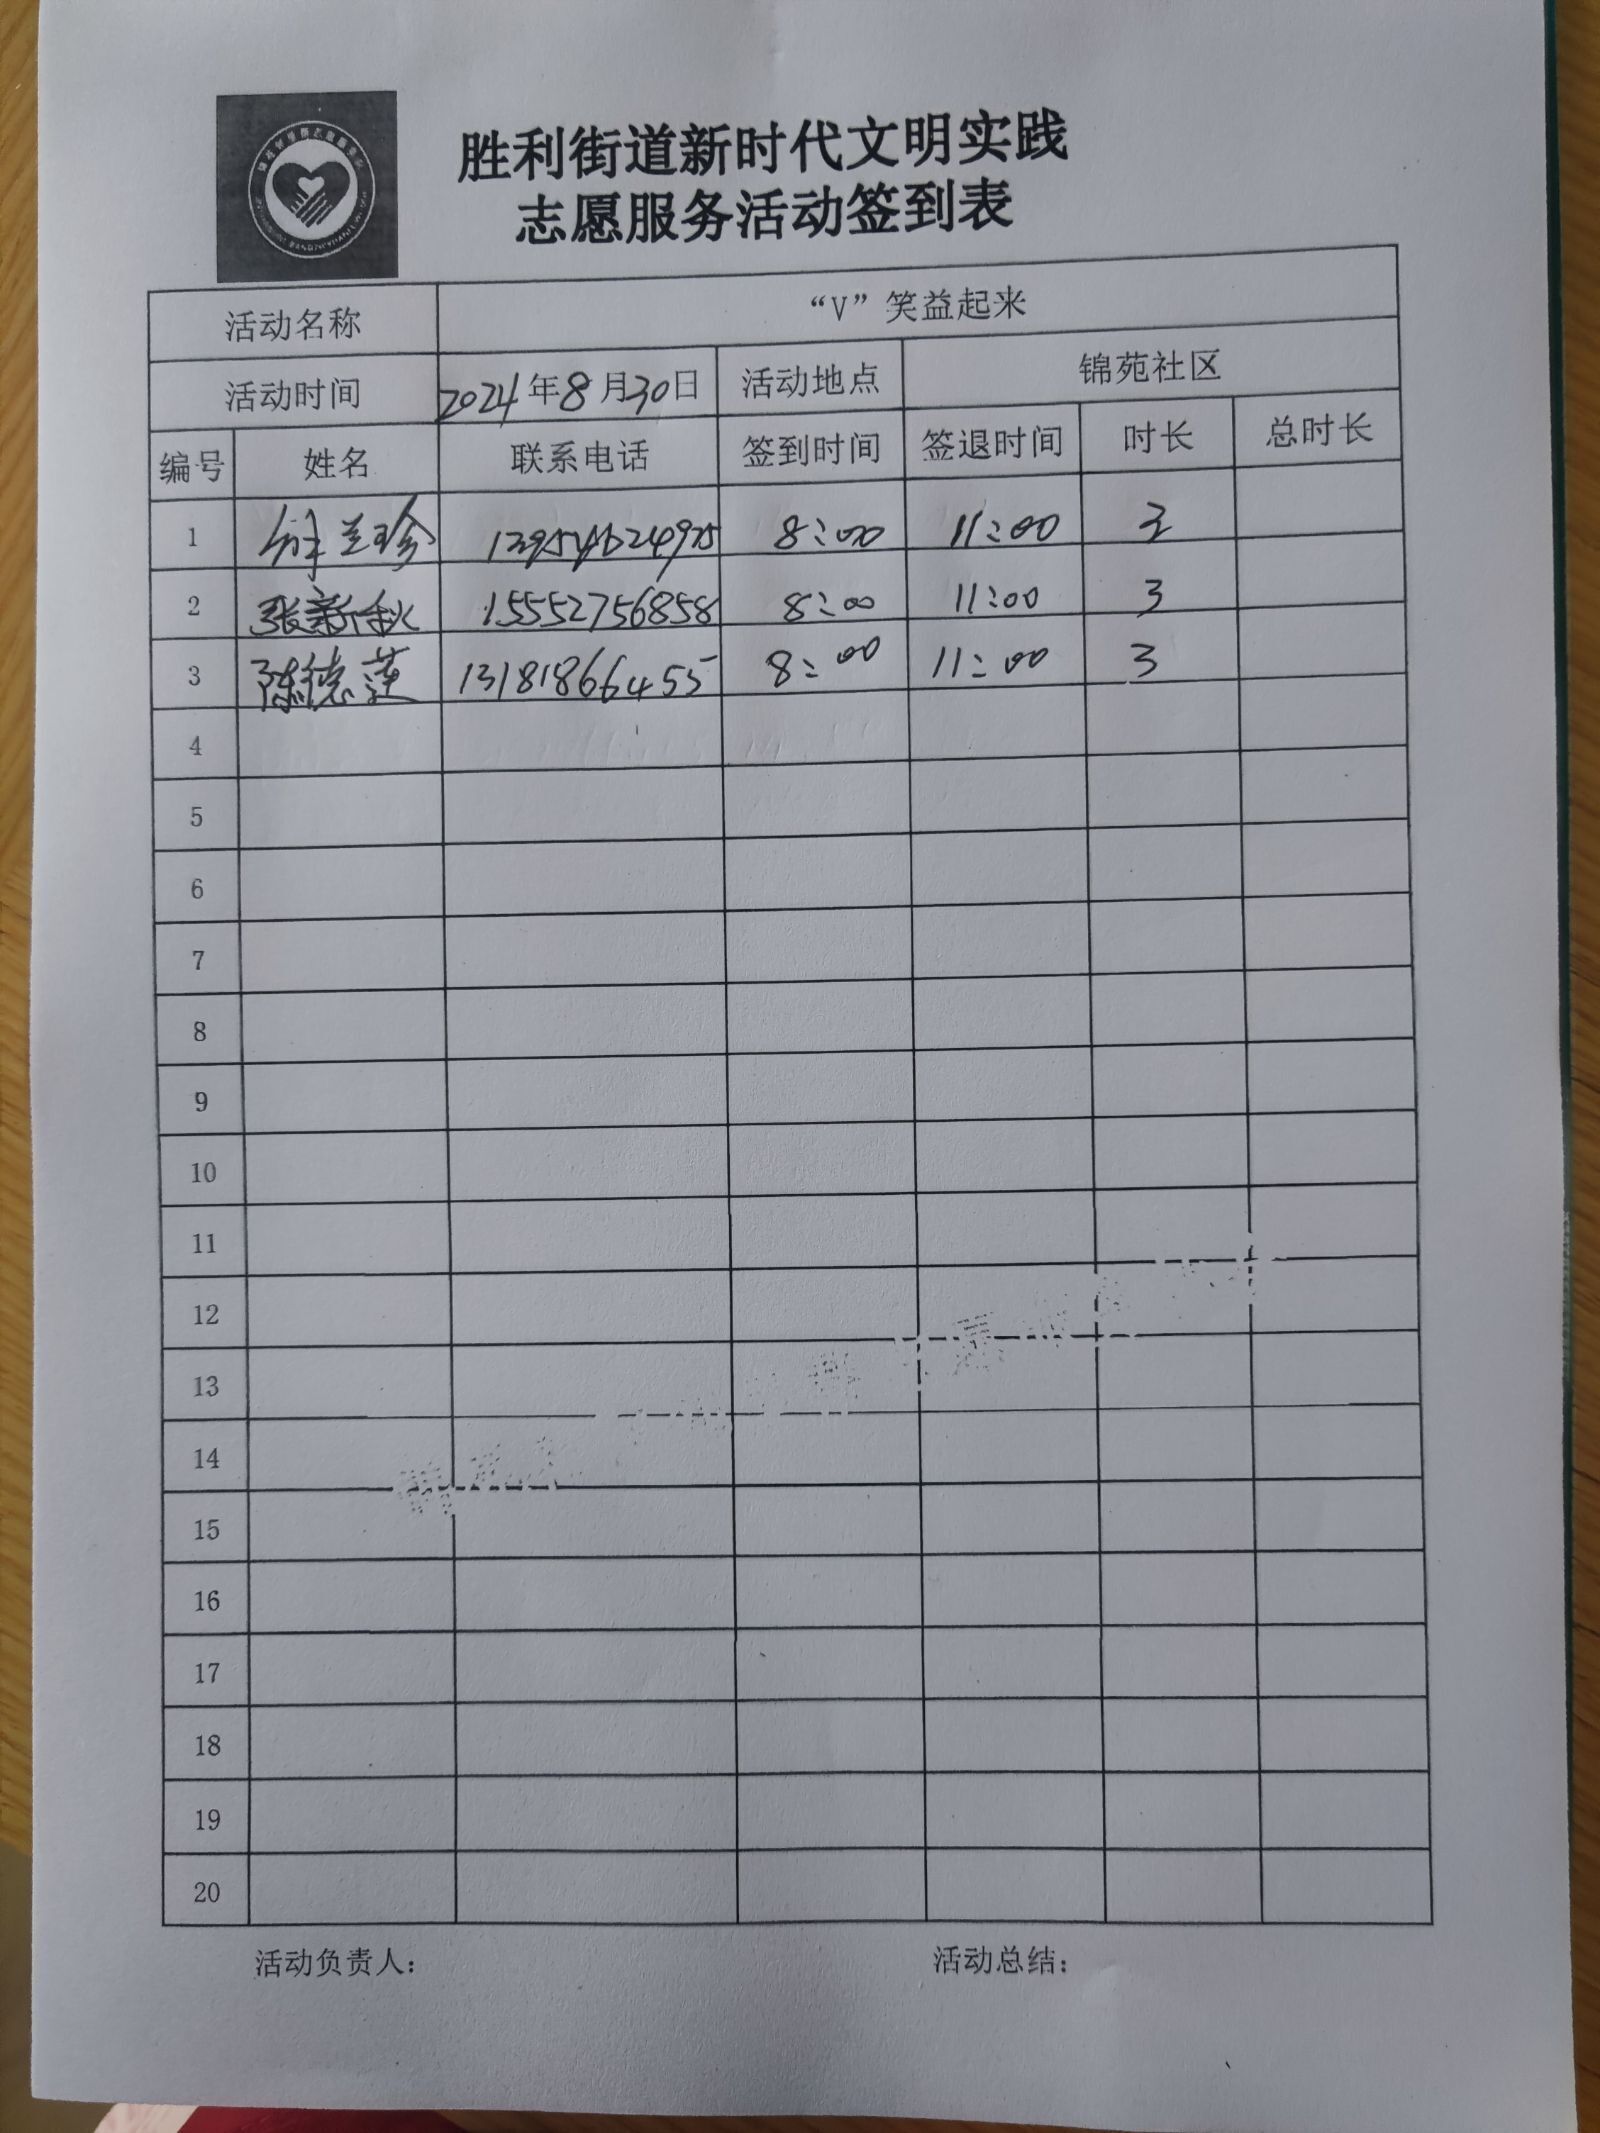 胜利街道新时代文明实践
志愿服务活动签到表
活动名称 “V”笑益起来
活动时间 2024年8月30日 活动地点 锦苑社区
编号 姓名 联系电话 签到时间 签退时间 时长 总时长
1 兰珍 8:00 11:00 3
2 张新秋 15552756858 8:00 11:00 3
3 陈德莲 13181866455 8:00 11:00 3
4
5
6
7
8
9
10
11
12
13
14
15
16
17
18
19
20
活动负责人： 活动总结：